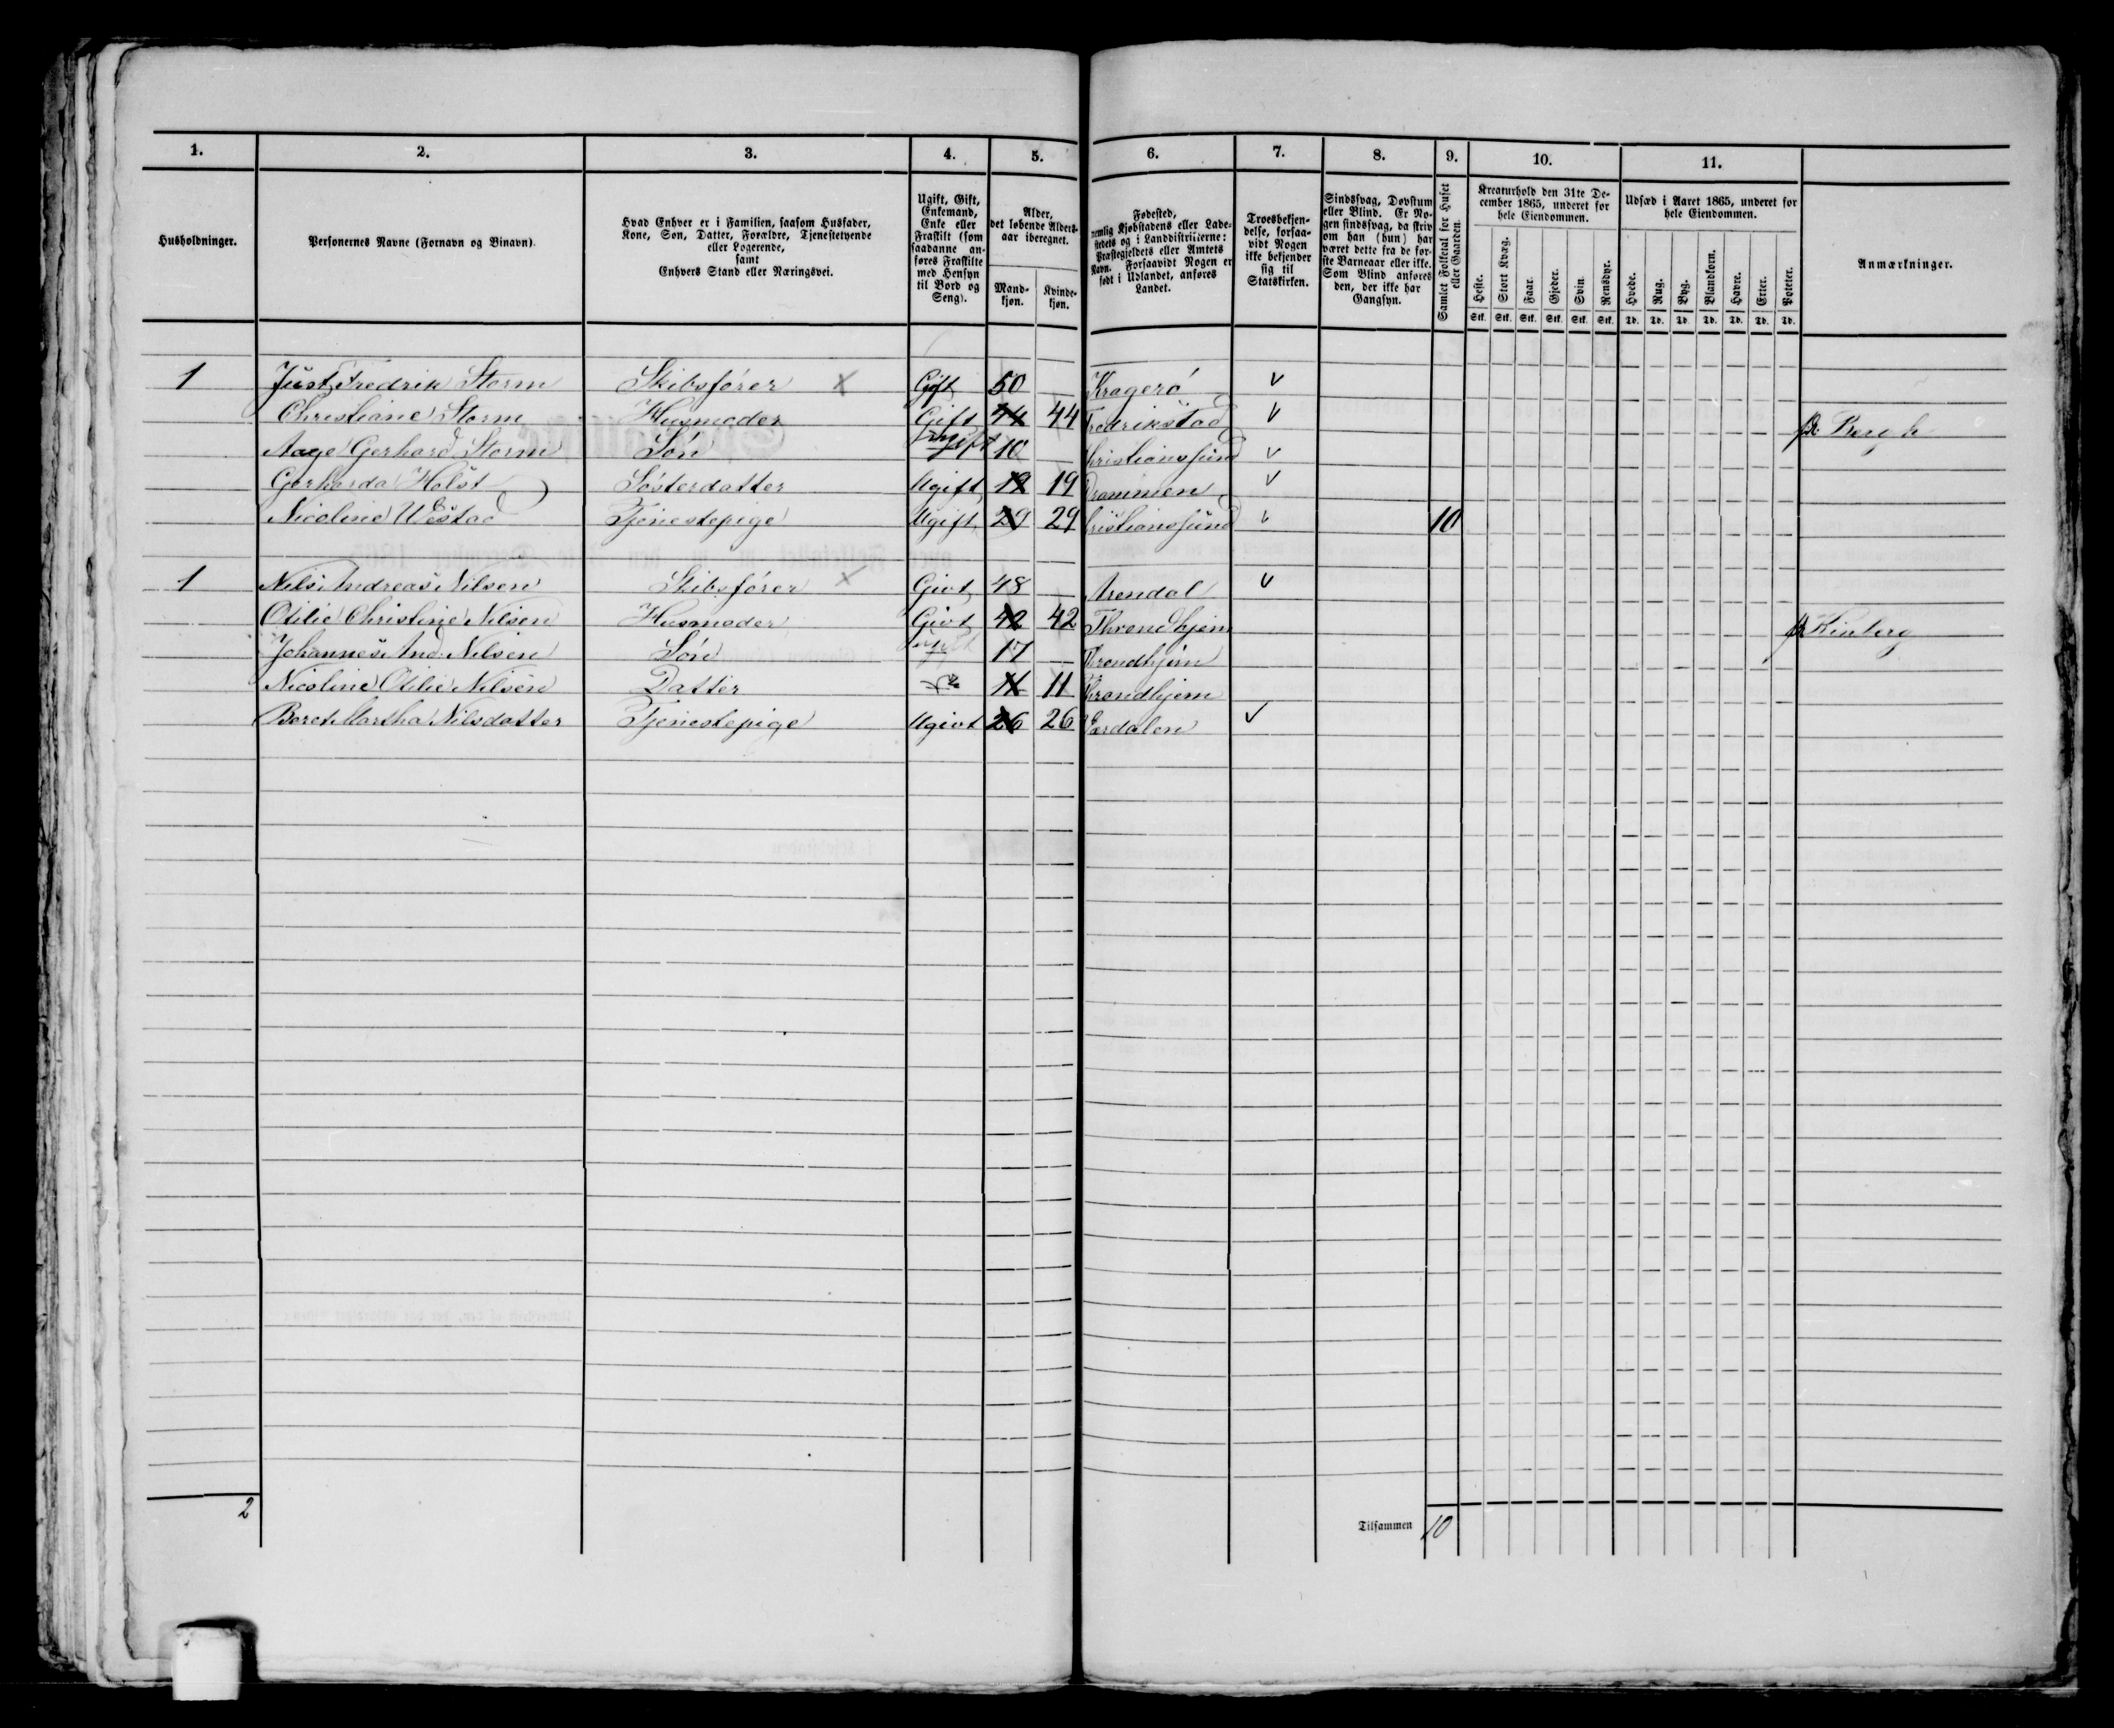 1. 2. 3. 4. 5. 6. 7. 8. 9. 10. 11.
Husholdninger.
Personernes Navne (Fornavn og Binavn).
Hvad Enhver er i Familien, saasom Husfader,
Kone, Søn, Datter, Forældre, Tjenestetyende
eller Logerende,
samt
Enhvers Stand eller Næringsvei.
Ugift, Gift,
Enkemand,
Enke eller
Fraskilt (som
saadanne an-
føres Fraskilte
med Hensyn
til Bord og
Seng).
Alder,
det løbende Alders-
aar iberegnet.
Mand-
kjøn.
Kvinde-
kjøn.
Fødested,
nemlig Kjøbstadens eller Lade-
stedets og i Landdistrikterne:
Præstegjeldets eller Amtets
Navn. Forsaavidt Nogen er
født i Udlandet, anføres
Landet.
Troesbekjen-
delse, forsaa-
vidt Nogen
ikke bekjender
sig til
Statskirken.
Sindssvag, Døvstum
eller Blind. Er No-
gen sindssvag, da skriv
om han (hun) har
været dette fra de før-
ste Barneaar eller ikke.
Som Blind anføres
den, der ikke har
Gangsyn.
Samlet Folketal for Huset
eller Gaarden.
Kreaturhold den 31te De-
cember 1865, underet for
hele Eiendommen.
Heste. Stort Kvæg. Faar. Gjeder. Svin. Rensdyr.
Stk. Stk. Stk. Stk. Stk. Stk.
Udsæd i Aaret 1865, underet for
hele Eiendommen.
Hvede. Rug. Byg. Blandkorn. Havre. Erter. Poteter.
Td. Td. Td. Td. Td. Td. Td.
Anmærkninger.
1 Just Fredrik Storm Skibsfører x Gift 50 Kragerø v
Christiane Storm Husmoder Gift 44 44 Fredrikstad v Bergh
Aage Gerhard Storm Søn Ugift 10 Christianssund v
Gerharda Holst Søsterdatter Ugift 19 19 Drammen v
Nicoline Westad Tjenestepige Ugift 29 29 Cristianssund v 10
1 Nils Andreas Nilsen Skibsfører x Givt 48 Arendal v
Otilie Christine Nilsen Husmoder Givt 42 42 Throndhjem
Johannes And. Nilsen Søn 17 Throndhjem
Nicoline Otilie Nilsen Datter 11 11 Throndhjem
Beret Martha Nilsdatter Tjenestepige Ugivt 26 26 Værdalen v
2 Tilsammen 10